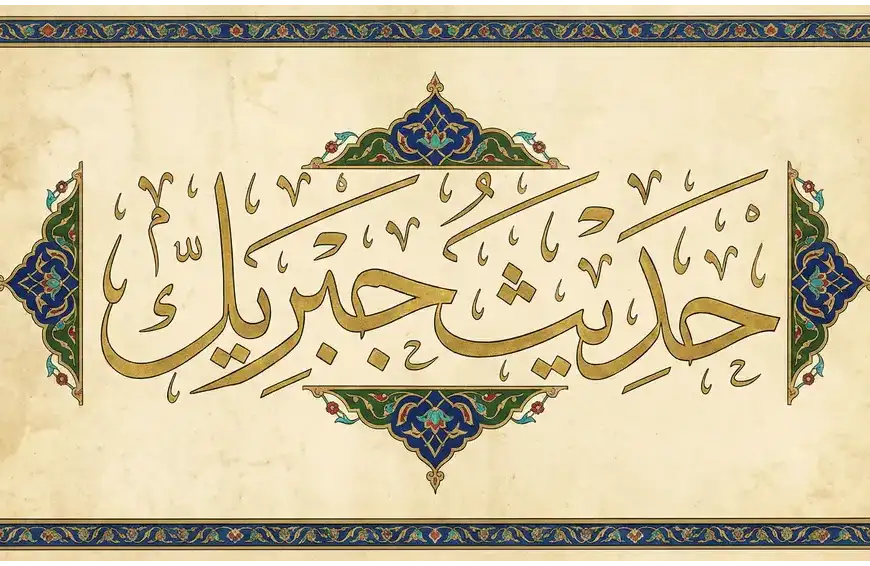 حديث جبريك